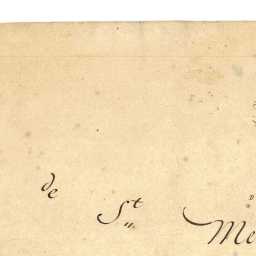 de St Me